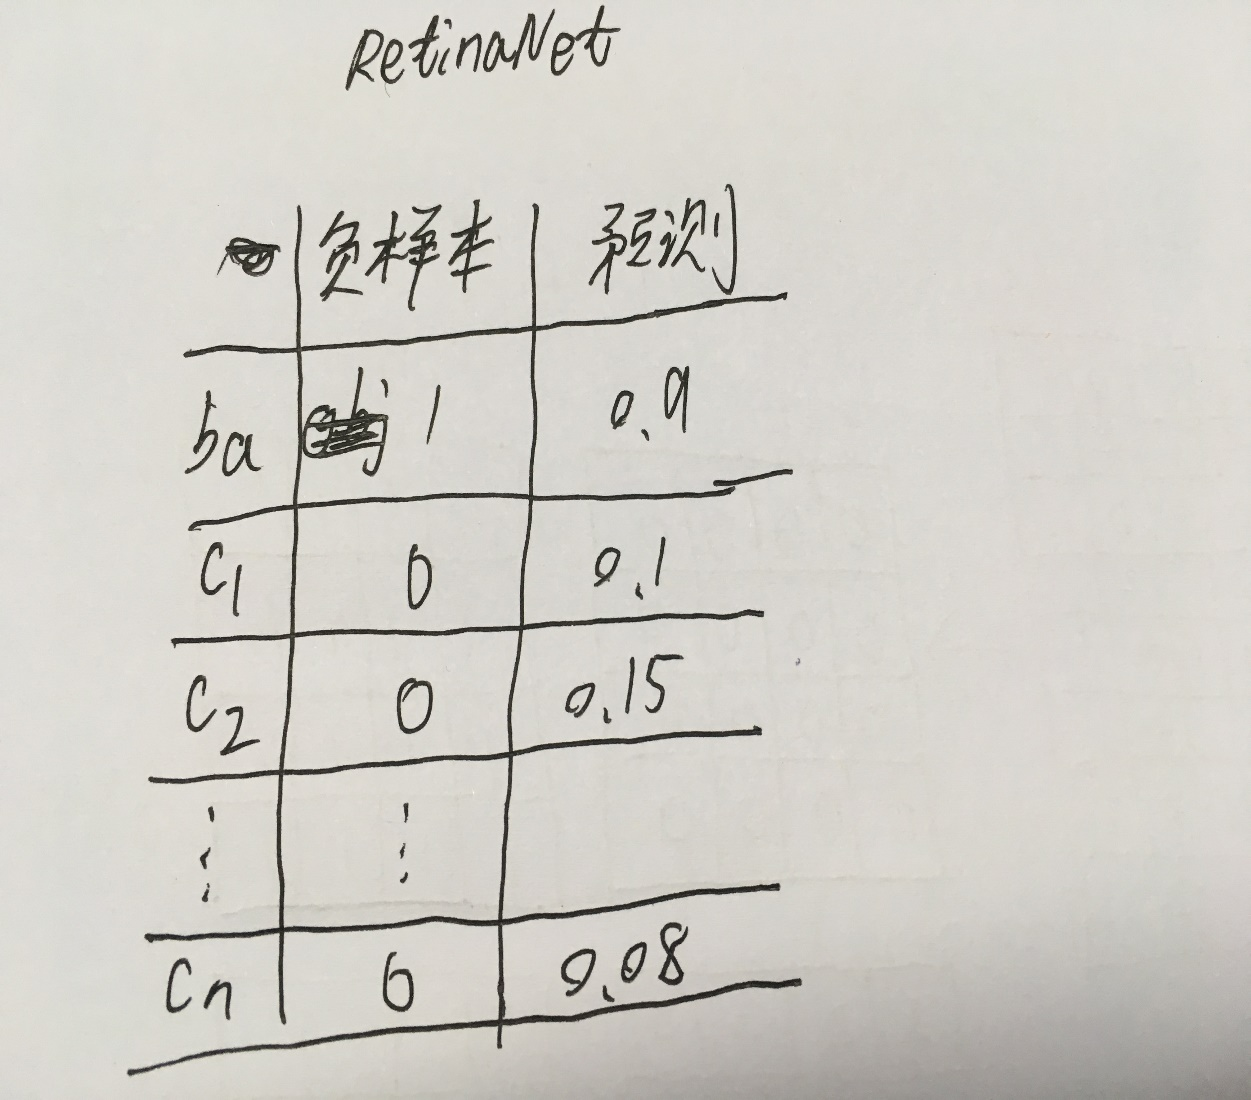 RetinaNet
负样本 预测
ba 1 0.9
C1 0 0.1
C2 0 0.15
⋮ ⋮
Cn 0 0.08